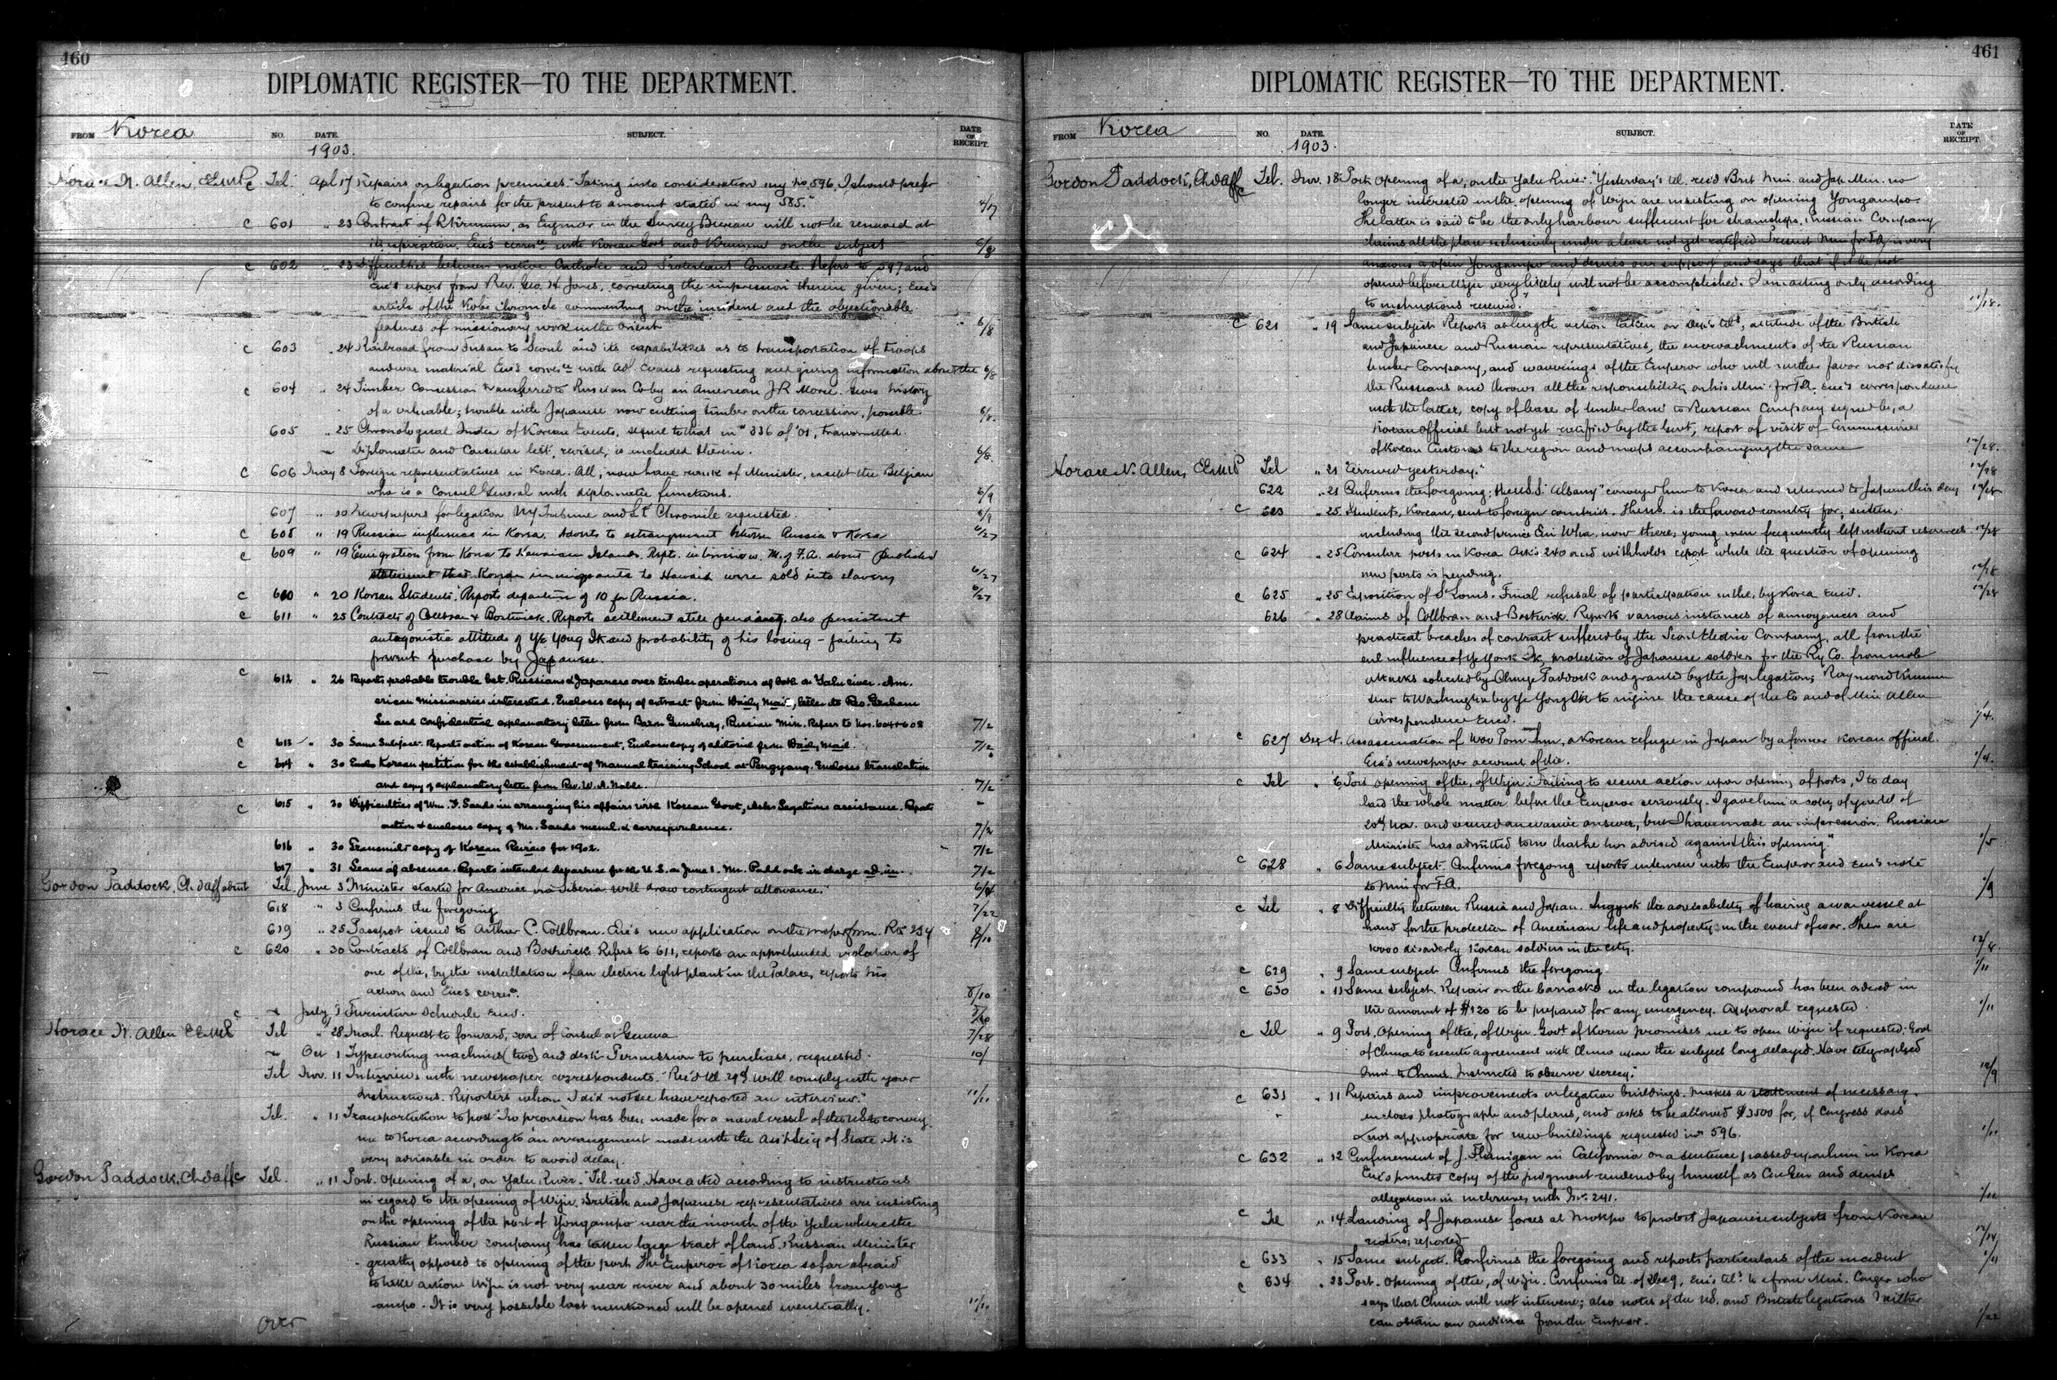 460
DIPLOMATIC REGISTER—TO THE DEPARTMENT.
FROM Korea NO. DATE. SUBJECT. DATE OF RECEIPT.
1903.
Horace N. Allen, E.E. & M.P. c Tel. Apl 17 Repairs on legation premises. "Taking into consideration my No. 596, I should prefer
to confine repairs for the present to amount stated in my 585." 4/17
c 601 " 23 Contract of R. Krumm, as Engineer in the Survey Bureau will not be renewed at
its expiration. Enc's corres. with Korean Govt and Krumm on the subject 6/8
c 602 " 23 Difficulties between native Catholic and Protestant Converts. Refers to 597 and
enc's report from Rev. Geo. H. Jones, correcting the impression therein given; Enc's
article of the Kobe Chronicle commenting on the incident and the objectionable
features of missionary work in the Orient 6/8
c 603 " 24 Railroad from Fusan to Seoul and its capabilities as to transportation of troops
and war material Enc's corres. with Ad. Evans requesting and giving information about the 6/8
c 604 " 24 Timber Concession transferred to Russian Co by an American J. R. Morse. Gives history
of a valuable; trouble with Japanese now cutting timber on the concession, possible 6/8.
605 " 25 Chronological Index of Korean Events, sequel to that in 336 of '01, transmitted.
Diplomatic and Consular list, revised, is included therein. 6/8
c 606 May 8 Foreign representatives in Korea. All, now have rank of Minister, except the Belgian
who is a Consul General with diplomatic functions. 6/9
607 " 10 Newspapers for legation NY Tribune and S.F. Chronicle requested. 6/9
c 608 " 19 Russian influence in Korea. Adverts to estrangement between Russia & Korea 6/27
c 609 " 19 Emigration from Korea to Hawaiian Islands. Rept. interview w. M. of F.A. about published
statement that Korean immigrants to Hawaii were sold into slavery 6/27
c 610 " 20 Korean Students. Reports departure of 10 for Russia. 6/27
c 611 " 25 Contracts of Collbran & Bostwick. Reports settlement still pending, also persistent
antagonistic attitude of Ye Yong Ik and probability of his losing – failing to
prevent purchase by Japanese.
c 612 " 26 Reports probable trouble bet. Russians & Japanese over timber operations of both on Yalu river. Am-
erican missionaries interested. Encloses copy of extract from Daily Mail, letter to Rev. Graham
Lee and confidential explanatory letter from Baron Gunsburg, Russian Min. Refers to Nos. 604 & 608 7/2
c 613 " 30 Same Subject. Reports action of Korean Government. Encloses copy of editorial from Daily Mail. 7/2
c 614 " 30 Encls Korean petition for the establishment of Manual training School at Pengyang. Encloses translation
and copy of explanatory letter from Rev. W. A. Noble. 7/2
c 615 " 30 Difficulties of Wm. F. Sands in arranging his affairs with Korean Govt, Asks Legations assistance. Repts
action & encloses copy of Mr. Sands meml. & correspondence. 7/2
616 " 30 Transmits copy of Korean Review for 1902. 7/2
617 " 31 Leave of absence. Reports intended departure for the U.S. on June 1. Mr. Paddock in charge ad. in. 7/2
Gordon Paddock, Ch. d'aff. ad int Tel. June 3 "Minister started for America via Siberia will draw contingent allowance." 6/4
618 " 3 Confirms the foregoing 7/22
619 " 25 Passport issued to Arthur C. Collbran. Enc's new application on the proper form. Rs 234 8/10
c 620 " 30 Contracts of Collbran and Bostwick Refers to 611, reports an apprehended violation of
one of the, by the installation of an electric light plant in the Palace, reports his
action and Encs corres. 8/10
c July 3 Furniture Schedule Encd.
Horace N. Allen E.E. & M.P. Tel " 28 Mail. Request to forward, care of Consul at Geneva 7/28
Oct 1 Typewriting machines (two) and desk Permission to purchase, requested. 10/1
Tel Nov. 11 Interviews with newspaper correspondents. "Rec'd tel. 29th will comply with your
instructions. Reporters whom I did not see have reported an interview." 11/11
Tel. " 11 Transportation to post "No provision has been made for a naval vessel of the U.S. to convey
me to Korea according to an arrangement made with the Ass't Sec'y of State. It is
very advisable in order to avoid delay.
Gordon Paddock, Ch d'aff Tel. " 11 Port. Opening of a, on Yalu River. "Tel. rec'd. Have acted according to instructions
in regard to the opening of Wiju. British and Japanese representatives are insisting
on the opening of the port of Yongampo near the mouth of the Yalu where the
Russian timber company has taken large tract of land. Russian Minister
greatly opposed to opening of the port. The Emperor of Korea so far afraid
to take action. Wiju is not very near river and about 30 miles from Yong
ampo. It is very possible last mentioned will be opened eventually. 11/11
over
461
DIPLOMATIC REGISTER—TO THE DEPARTMENT.
FROM Korea NO. DATE. SUBJECT. DATE OF RECEIPT.
1903.
Gordon Paddock, Ch d'aff Tel. Nov. 18 Port. Opening of a, on the Yalu River. "Yesterday's tel. rec'd Brit Min. and Jap. Min. no
longer interested in the opening of Wiju are insisting on opening Yongampo
The latter is said to be the only harbour sufficient for steamships. Russian Company
claims all the place exclusively under a lease not yet ratified. Present Min. for F.A. is very
anxious to open Yongampo and desires our support and says that if it be not
opened before Wiju very likely will not be accomplished. I am acting only according
to instructions received." 11/18.
c 621 " 19 Same subject. Reports at length action taken on Dep't's tels, attitude of the British
and Japanese and Russian representatives, the encroachments of the Russian
timber Company, and waverings of the Emperor who will neither favor nor dissatisfy
the Russians and throws all the responsibility on his Min. for F.A. Enc's correspondence
with the latter, copy of lease of timber land to Russian Company signed by a
Korean official but not yet ratified by the Govt, report of visit of Commissioner
of Korean Customs to the region and maps accompanying the same 12/28.
Horace N. Allen, E.E. & M.P. Tel " 21 "Arrived yesterday." 12/28
622 " 21 Confirms the foregoing; the U.S.S. "Albany" conveyed him to Korea and returned to Japan this day 12/28
c 623 " 25 Students, Korean, sent to foreign countries. The U.S. is the favored country for; sixteen,
including the second prince Eui Wha, now there; young men frequently left without resources 12/28
c 624 " 25 Consular posts in Korea Ack's 240 and withholds report while the question of opening
new ports is pending. 12/28
c 625 " 25 Exposition of St. Louis. Final refusal of participation in the, by Korea Enc'd. 12/28
626 " 28 Claims of Collbran and Bostwick. Reports various instances of annoyances and
practical breaches of contract suffered by the Seoul Electric Company, all from the
evil influence of Ye Yong Ik, protection of Japanese soldiers for the Ry Co. from mob
attacks solicited by Charge Paddock and granted by the Jap. legation; Raymond Krumm
sent to Washington by Ye Yong Ik to injure the cause of the Co and of Min Allen
Correspondence Encd. 1/4.
c 627 Dec 4. Assassination of Woo Pom Sun, a Korean refugee in Japan by a former Korean official.
Enc's newspaper account of the. 1/4.
c Tel " 6 Port opening of the, of Wiju. "Failing to secure action upon opening of ports, I to day
laid the whole matter before the Emperor seriously. I gave him a copy of your tel of
20th Nov. and secured an evasive answer, but I have made an impression. Russian
Minister has admitted to me that he has advised against this opening."
c 628 " 6 Same subject. Confirms foregoing reports interview with the Emperor and encs note
to Min for F.A. 1/9
c Tel " 8 Difficulty between Russia and Japan. Suggests the advisability of having a war vessel at
hand for the protection of American life and property in the event of war. There are
10000 disorderly Korean soldiers in the city. 12/8.
c 629 " 9 Same subject. Confirms the foregoing 1/11
c 630 " 11 Same subject. Repair on the barracks in the legation compound has been ordered in
the amount of $120 to be prepared for any emergency. Approval requested. 1/11
c Tel " 9 Port. Opening of the, of Wiju. "Govt of Korea promises me to open Wiju if requested. Govt
of China to execute agreement with China upon the subject long delayed. Have telegraphed
Min. to China. Instructed to observe secrecy." 12/9
c 631 " 11 Repairs and improvements on legation buildings. Makes a statement of necessary,
encloses photograph and plans, and asks to be allowed $3500 for, if Congress does
not appropriate for new buildings requested in 596. 1/11
c 632 " 12 Confinement of J. Flanigan in California on a sentence passed upon him in Korea
Enc's printed copy of the judgment rendered by himself as Con Gen and denies
allegations in inclosures with No. 241. 1/11
c Tel " 14 Landing of Japanese forces at Mokpo to protect Japanese subjects from Korean
rioters; reported 12/14
c 633 " 15 Same subject. Confirms the foregoing and reports particulars of the incident 1/11
c 634 " 23 Port. Opening of the, of Wiju. Confirms tel. of Dec 9, Enc's tels to & from Min. Conger who
says that China will not intervene; also notes of the U.S. and British legations. Neither
can obtain an audience from the Emperor. 1/22